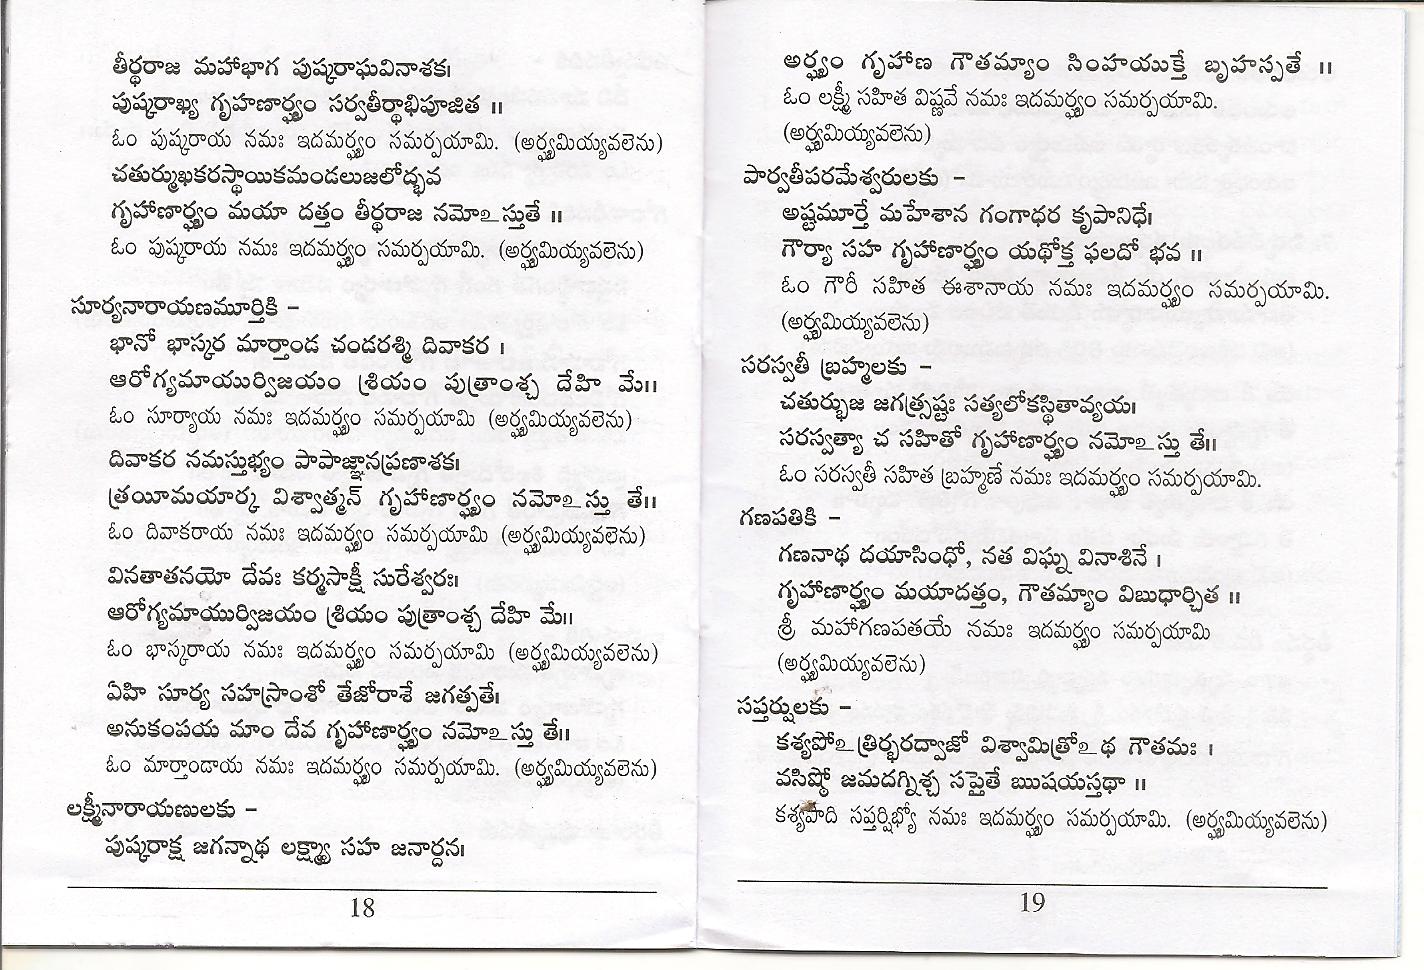 తీర్థరాజ మహాభాగ పుష్కరాఘవినాశక।
పుష్కరాఖ్య గృహణార్ఘ్యం సర్వతీర్థాభిపూజిత ॥
ఓం పుష్కరాయ నమః ఇదమర్ఘ్యం సమర్పయామి. (అర్ఘ్యమియ్యవలెను)
చతుర్ముఖకరస్థాయికమండలుజలోద్భవ
గృహాణార్ఘ్యం మయా దత్తం తీర్థరాజ నమోఽస్తుతే ॥
ఓం పుష్కరాయ నమః ఇదమర్ఘ్యం సమర్పయామి. (అర్ఘ్యమియ్యవలెను)
సూర్యనారాయణమూర్తికి –
భానో భాస్కర మార్తాండ చండరశ్మి దివాకర ।
ఆరోగ్యమాయుర్విజయం శ్రియం పుత్రాంశ్చ దేహి మే॥
ఓం సూర్యాయ నమః ఇదమర్ఘ్యం సమర్పయామి (అర్ఘ్యమియ్యవలెను)
దివాకర నమస్తుభ్యం పాపాజ్ఞానప్రణాశక।
త్రయీమయార్క విశ్వాత్మన్ గృహాణార్ఘ్యం నమోఽస్తు తే॥
ఓం దివాకరాయ నమః ఇదమర్ఘ్యం సమర్పయామి (అర్ఘ్యమియ్యవలెను)
వినతాతనయో దేవః కర్మసాక్షీ సురేశ్వరః।
ఆరోగ్యమాయుర్విజయం శ్రియం పుత్రాంశ్చ దేహి మే॥
ఓం భాస్కరాయ నమః ఇదమర్ఘ్యం సమర్పయామి (అర్ఘ్యమియ్యవలెను)
ఏహి సూర్య సహస్రాంశో తేజోరాశే జగత్పతే।
అనుకంపయ మాం దేవ గృహాణార్ఘ్యం నమోఽస్తు తే॥
ఓం మార్తాండాయ నమః ఇదమర్ఘ్యం సమర్పయామి. (అర్ఘ్యమియ్యవలెను)
లక్ష్మీనారాయణులకు –
పుష్కరాక్ష జగన్నాథ లక్ష్మ్యా సహ జనార్దన।
18
అర్ఘ్యం గృహాణ గౌతమ్యాం సింహయుక్తే బృహస్పతే ॥
ఓం లక్ష్మీ సహిత విష్ణవే నమః ఇదమర్ఘ్యం సమర్పయామి.
(అర్ఘ్యమియ్యవలెను)
పార్వతీపరమేశ్వరులకు –
అష్టమూర్తే మహేశాన గంగాధర కృపానిధే।
గౌర్యా సహ గృహాణార్ఘ్యం యథోక్త ఫలదో భవ ॥
ఓం గౌరీ సహిత ఈశానాయ నమః ఇదమర్ఘ్యం సమర్పయామి.
(అర్ఘ్యమియ్యవలెను)
సరస్వతీ బ్రహ్మలకు –
చతుర్భుజ జగత్స్రష్టః సత్యలోకస్థితావ్యయ।
సరస్వత్యా చ సహితో గృహాణార్ఘ్యం నమోఽస్తు తే॥
ఓం సరస్వతీ సహిత బ్రహ్మణే నమః ఇదమర్ఘ్యం సమర్పయామి.
గణపతికి –
గణనాథ దయాసింధో, నత విఘ్న వినాశినే ।
గృహాణార్ఘ్యం మయాదత్తం, గౌతమ్యాం విబుధార్చిత ॥
శ్రీ మహాగణపతయే నమః ఇదమర్ఘ్యం సమర్పయామి
(అర్ఘ్యమియ్యవలెను)
సప్తర్షులకు –
కశ్యపోఽత్రిర్భరద్వాజో విశ్వామిత్రోఽథ గౌతమః ।
వసిష్ఠో జమదగ్నిశ్చ సప్తైతే ఋషయస్తథా ॥
కశ్యపాది సప్తర్షిభ్యో నమః ఇదమర్ఘ్యం సమర్పయామి. (అర్ఘ్యమియ్యవలెను)
19